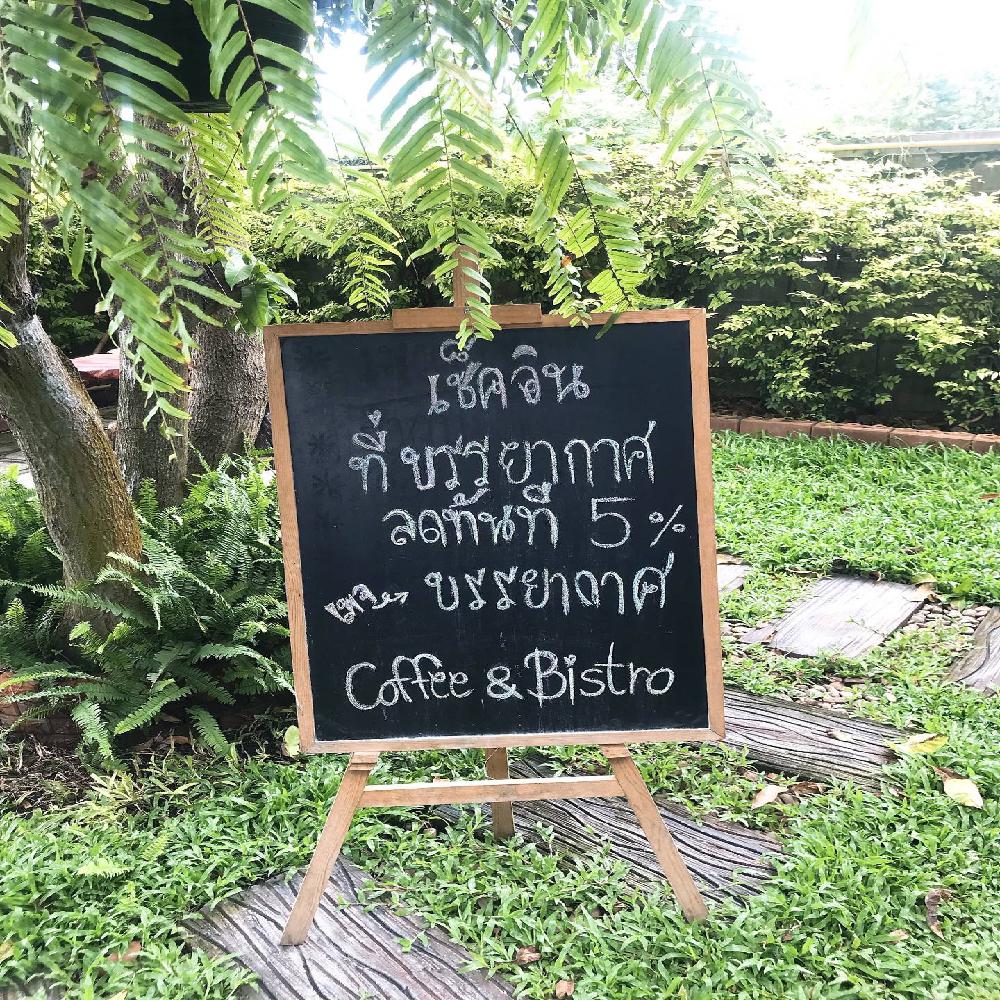 เช็คอิน
ที่ บรรยากาศ
ลดทันที 5 %
เพจ บรรยากาศ
Coffee & Bistro